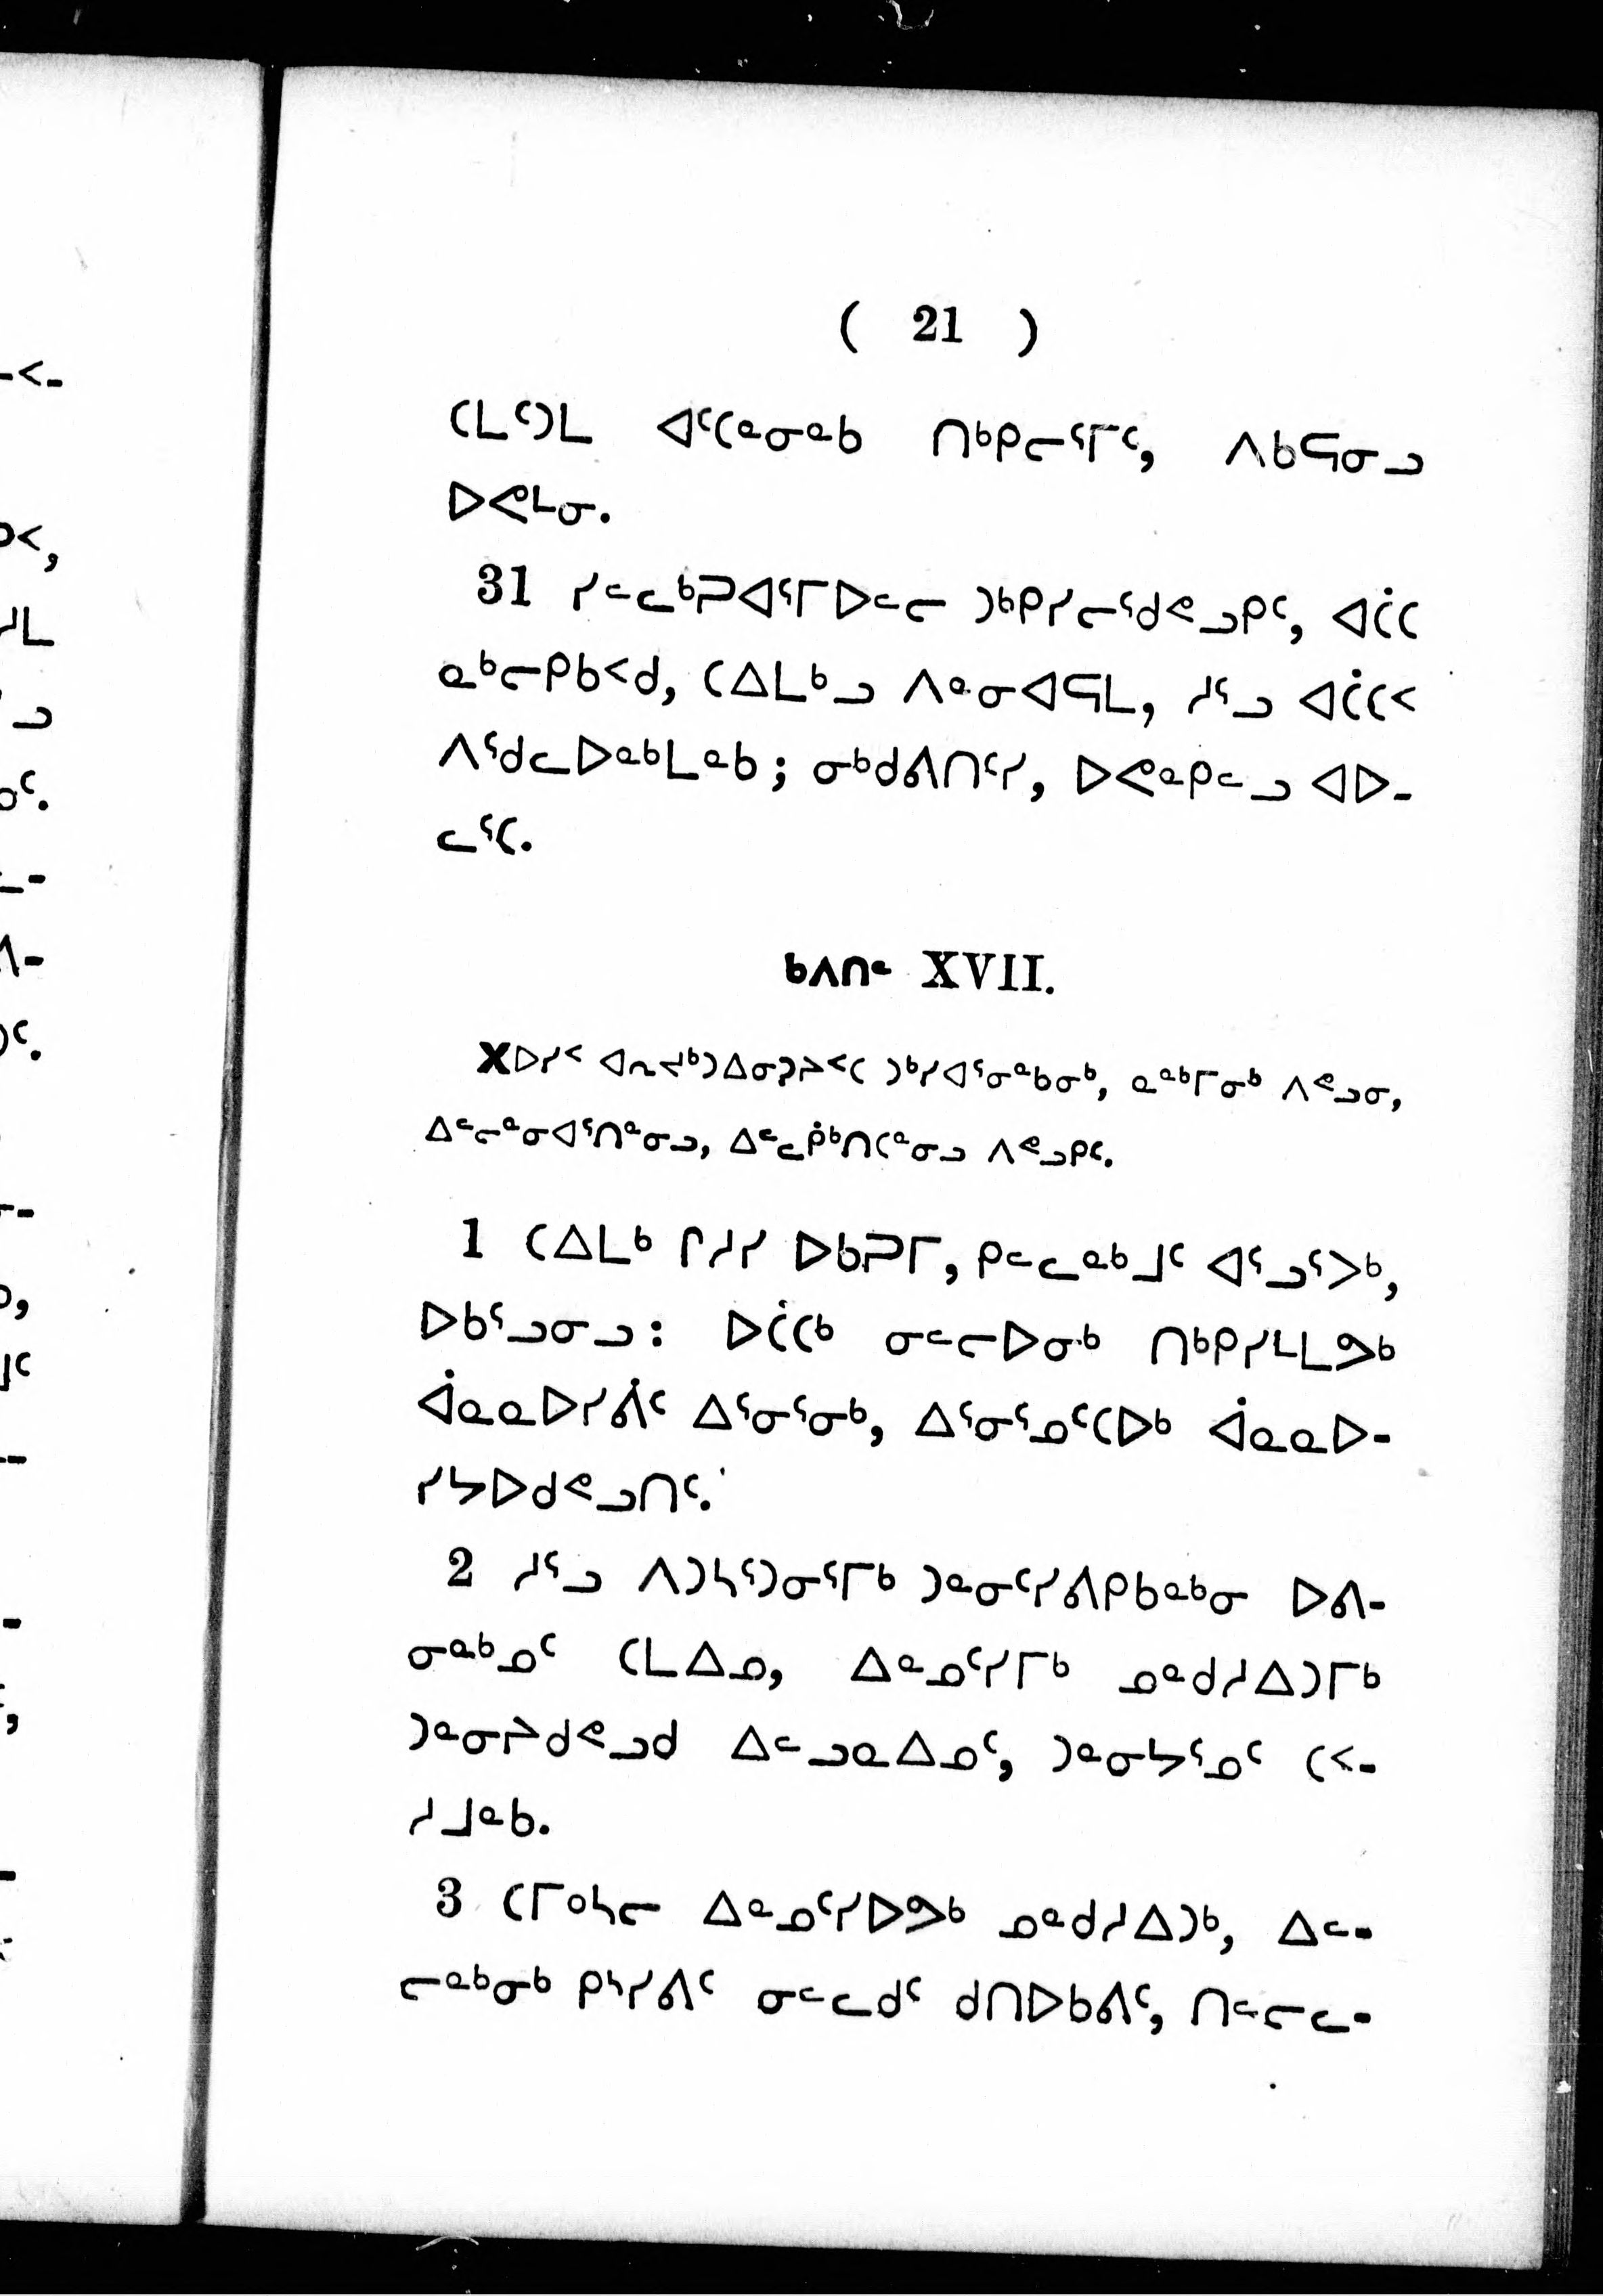 ( 21 )
ᑕᒪᑦᑐᒪ ᐊᑦᑕᓐᓂᓐᑲ ᑎᒃᑭᓕᕐᒥᑦ, ᐱᑲᕋᓂᓗ
ᐅᕙᒻᓂ.
31 ᓯᓪᓚᒃᑯᐊᕐᒥᐅᓪᓕ ᑐᒃᑭᓯᓕᕐᑯᕝᓗᑭᑦ, ᐊᑖᑕ
ᓇᒃᓕᑭᑲᑉᑯ, ᑕᐃᒪᒃᓗ ᐱᓐᓂᐊᕋᒪ, ᓱᕐᓗ ᐊᑖᑕᑉ
ᐱᕐᑯᓚᐅᓐᒃᒪᓐᑲ; ᓂᒃᑯᕕᑎᑦᓯ, ᐅᕙᓐᑭᓪᓗ ᐊᐅ-
ᓚᕐᑕ.
ᑲᐱᑎᓪ XVII.
Xᐅᓯᑉ ᐊᕆᔪᒃᑐᐃᓂᕈᔨᑉᑕ ᑐᒃᓯᐊᕐᓂᓐᑲᓂᒃ, ᓇᓐᒃᒥᓂᒃ ᐱᕝᓗᓂ,
ᐃᓪᓕᓐᓂᐊᕐᑎᓐᓂᓗ, ᐃᓪᓚᑮᒃᑎᑕᓐᓂᓗ ᐱᕝᓗᑭᑦ.
1 ᑕᐃᒪᒃ ᒋᓱᓯ ᐅᑲᕈᒥ, ᑭᓪᓚᓐᒃᒧᑦ ᐊᕐᓗᕐᐳᒃ,
ᐅᑲᕐᓗᓂᓗ: ᐅᑖᑕᒃ ᓂᓪᓕᐅᓂᒃ ᑎᒃᑭᓯᒻᒪᕗᒃ
ᐋᓇᓇᐅᓯᕖᑦ ᐃᕐᓂᕐᓂᒃ, ᐃᕐᓂᕐᓄᑦᑕᐅᒃ ᐋᓇᓇᐅ-
ᓯᔭᐅᑯᕝᓗᑎᑦ.
2 ᓱᕐᓗ ᐱᑐᓴᕐᑐᓂᕐᒥᒃ ᑐᓐᓂᑦᓯᕕᑭᑲᓐᒃᓂ ᐅᕕ-
ᓂᓐᒃᓄᑦ ᑕᒪᐃᓄ, ᐃᓐᓄᑦᓯᒥᒃ ᓄᓐᑯᓱᐃᑐᒥᒃ
ᑐᓐᓂᔨᑯᕝᓗᑯ ᐃᓪᓗᓇᐃᓄᑦ, ᑐᓐᓂᔭᕐᓄᑦ ᑕᑉ-
ᓱᒧᓐᑲ.
3 ᑕᒥᐤᓴᓕ ᐃᓐᓄᑦᓯᐅᕗᒃ ᓄᓐᑯᓱᐃᑐᒃ, ᐃᓪ-
ᓕᓐᒃᓂᒃ ᑭᔅᓯᕕᑦ ᓂᓪᓚᑯᑦ ᑯᑎᐅᑲᕕᑦ, ᑎᓪᓕᓚ-